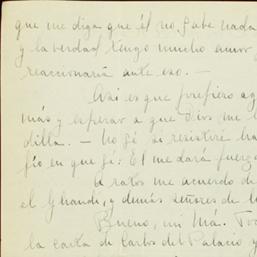 que me diga que él no sabe nada
y la verdad tengo mucho amor
reaccionaría ante eso. —
Así es que prefiero ag
más y esperar a que Dios me
dilla. — No sé si resistiré
fío en que sí: Él me dará fuerz
a ratos me acuerdo de
el Ghandi, y demás señores de l
Bueno, mi Má.
la carta de Carlos del Palacio y